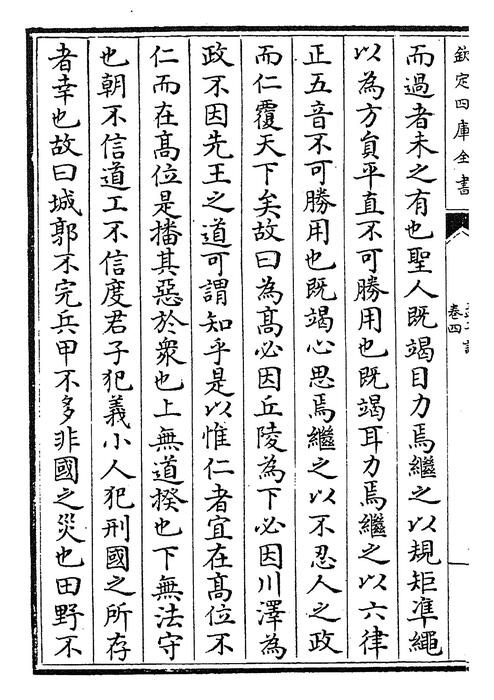 欽定四庫全書
卷四
而過者未之有也聖人既竭目力焉繼之以規矩凖繩
以為方員平直不可勝用也既竭耳力焉繼之以六律
正五音不可勝用也既竭心思焉繼之以不忍人之政
而仁覆天下矣故曰為髙必因丘陵為下必因川澤為
政不因先王之道可謂知乎是以惟仁者宜在髙位不
仁而在髙位是播其惡於衆也上無道揆也下無法守
也朝不信道工不信度君子犯義小人犯刑國之所存
者幸也故曰城郭不完兵甲不多非國之災也田野不